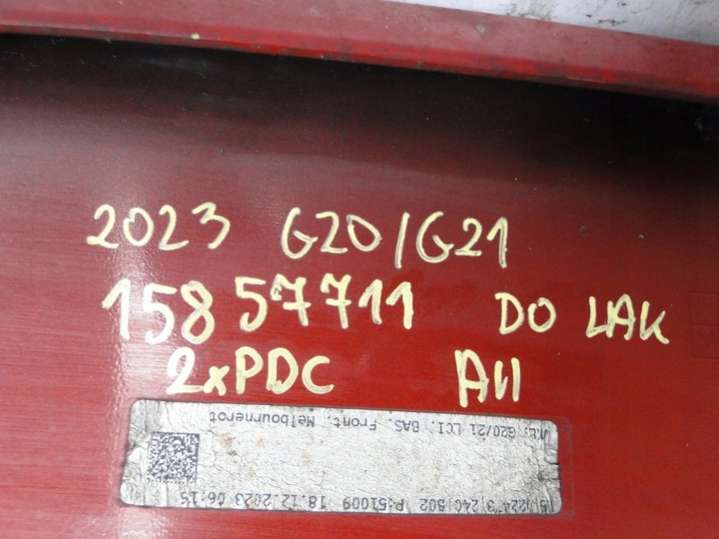 2023 G20/G21
15857711 DO LAK
2xPDC A11
G20/21 LCI. BAS. Front. Melbournerot
P:51009 18.12.2023 06:15